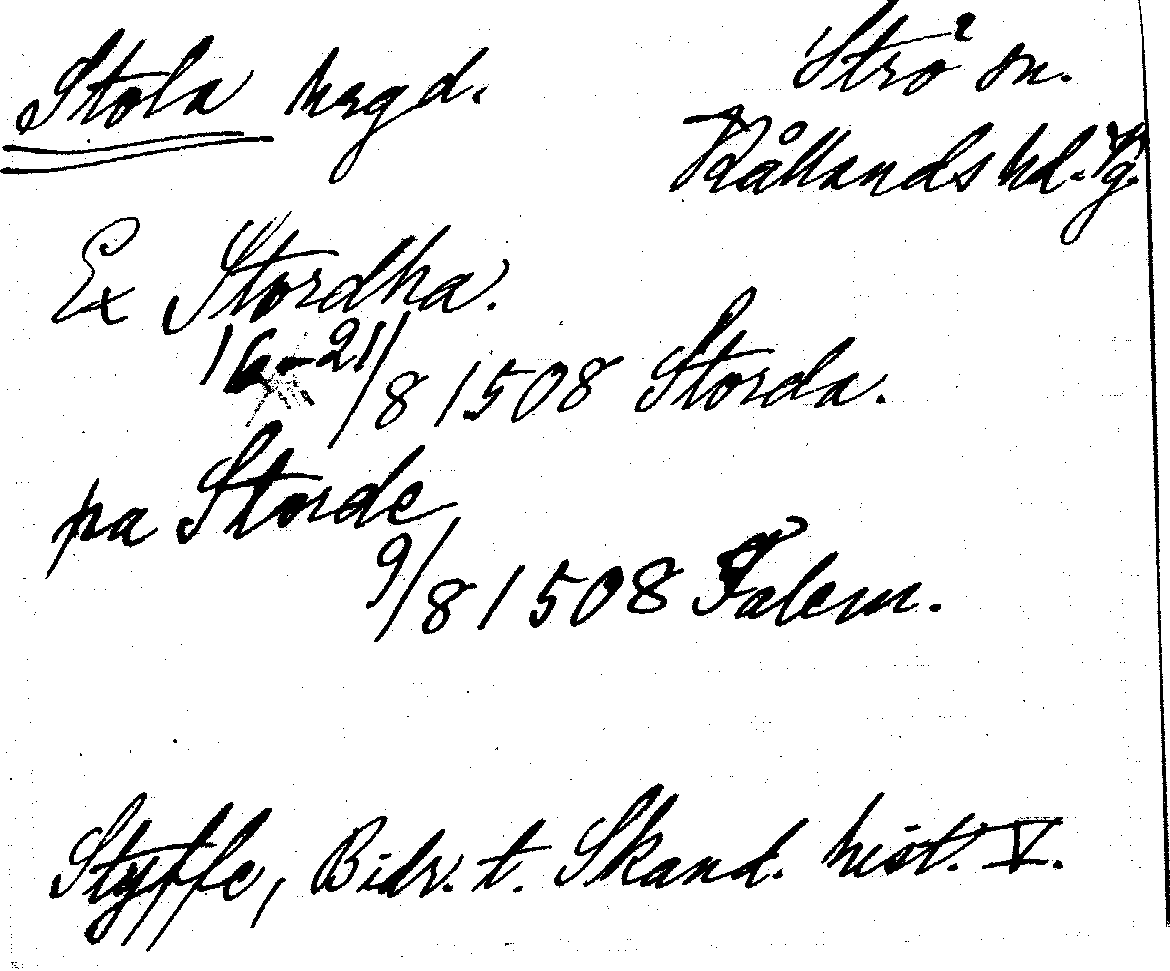 Stola hrgd. Strö sn.
Kållands hd. Vg.
Ex Stordha.
16-21/8 1508 Storda.
pa Storde
9/8 1508 Falem.
Styffe, Bidr. t. Skand. hist. V.